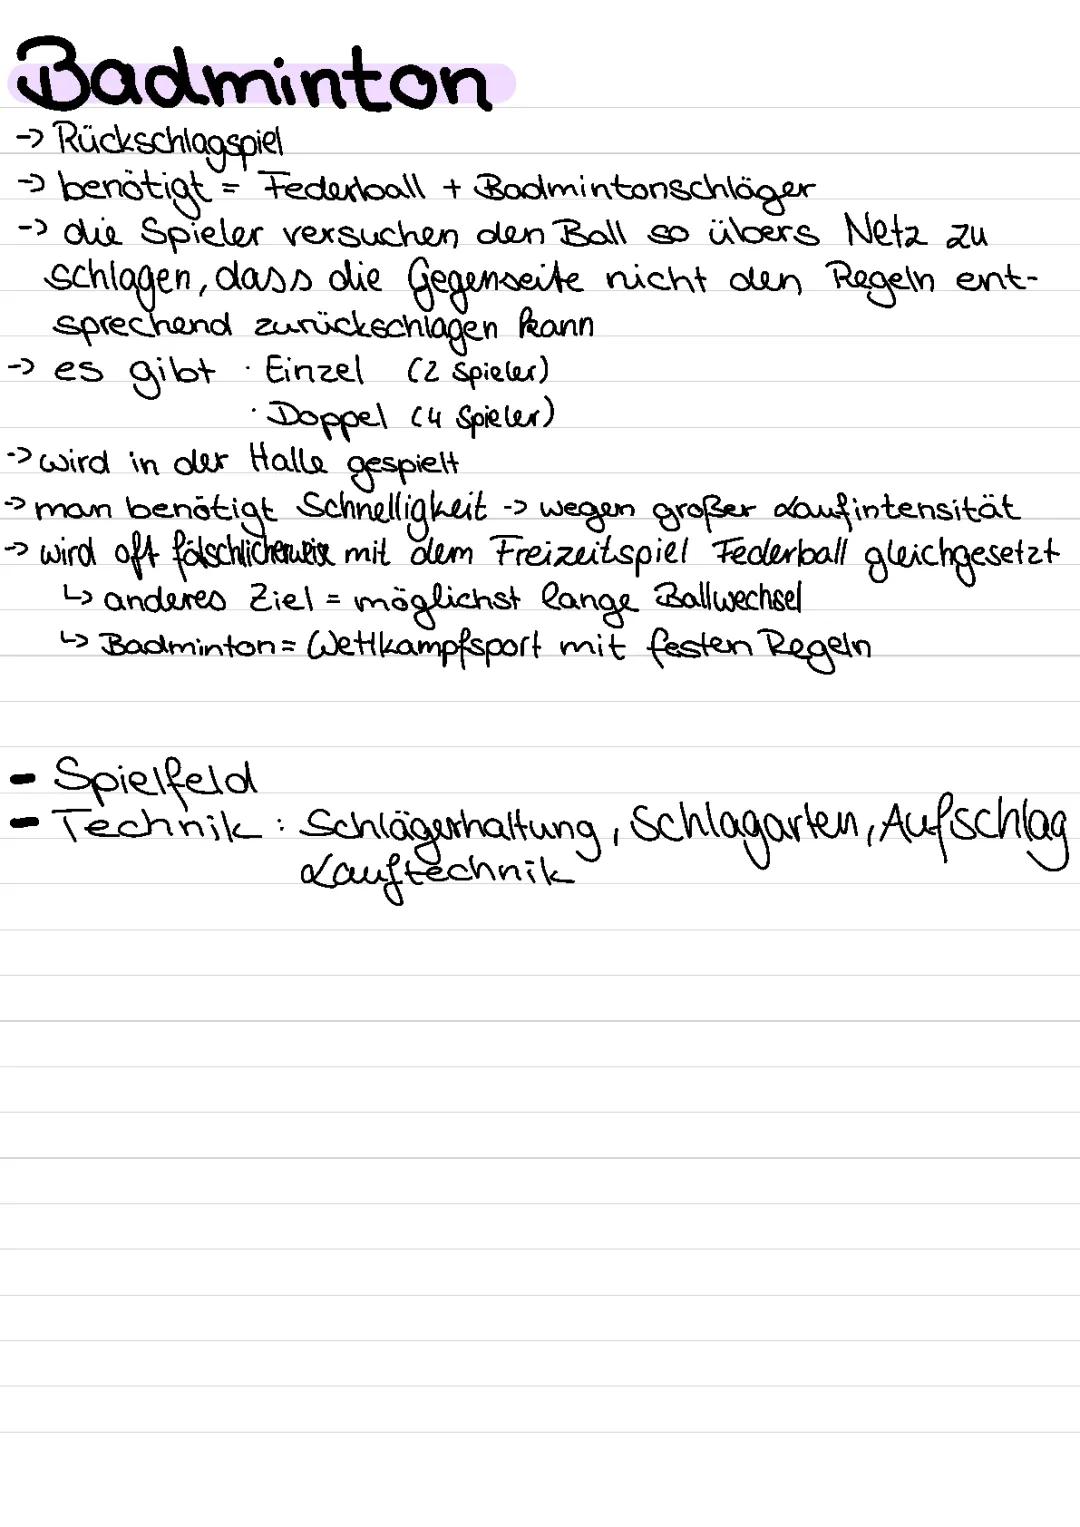 Badminton
-> Rückschlagspiel
-> benötigt = Federball + Badmintonschläger
-> die Spieler versuchen den Ball so übers Netz zu
schlagen, dass die Gegenseite nicht den Regeln ent-
sprechend zurückschlagen kann
-> es gibt · Einzel (2 Spieler)
· Doppel (4 Spieler)
-> wird in der Halle gespielt
-> man benötigt Schnelligkeit -> wegen großer Laufintensität
-> wird oft fälschlicherweise mit dem Freizeitspiel Federball gleichgesetzt
↳ anderes Ziel = möglichst lange Ballwechsel
↳ Badminton = Wettkampfsport mit festen Regeln
- Spielfeld
- Technik : Schlägerhaltung, Schlagarten, Aufschlag
Lauftechnik